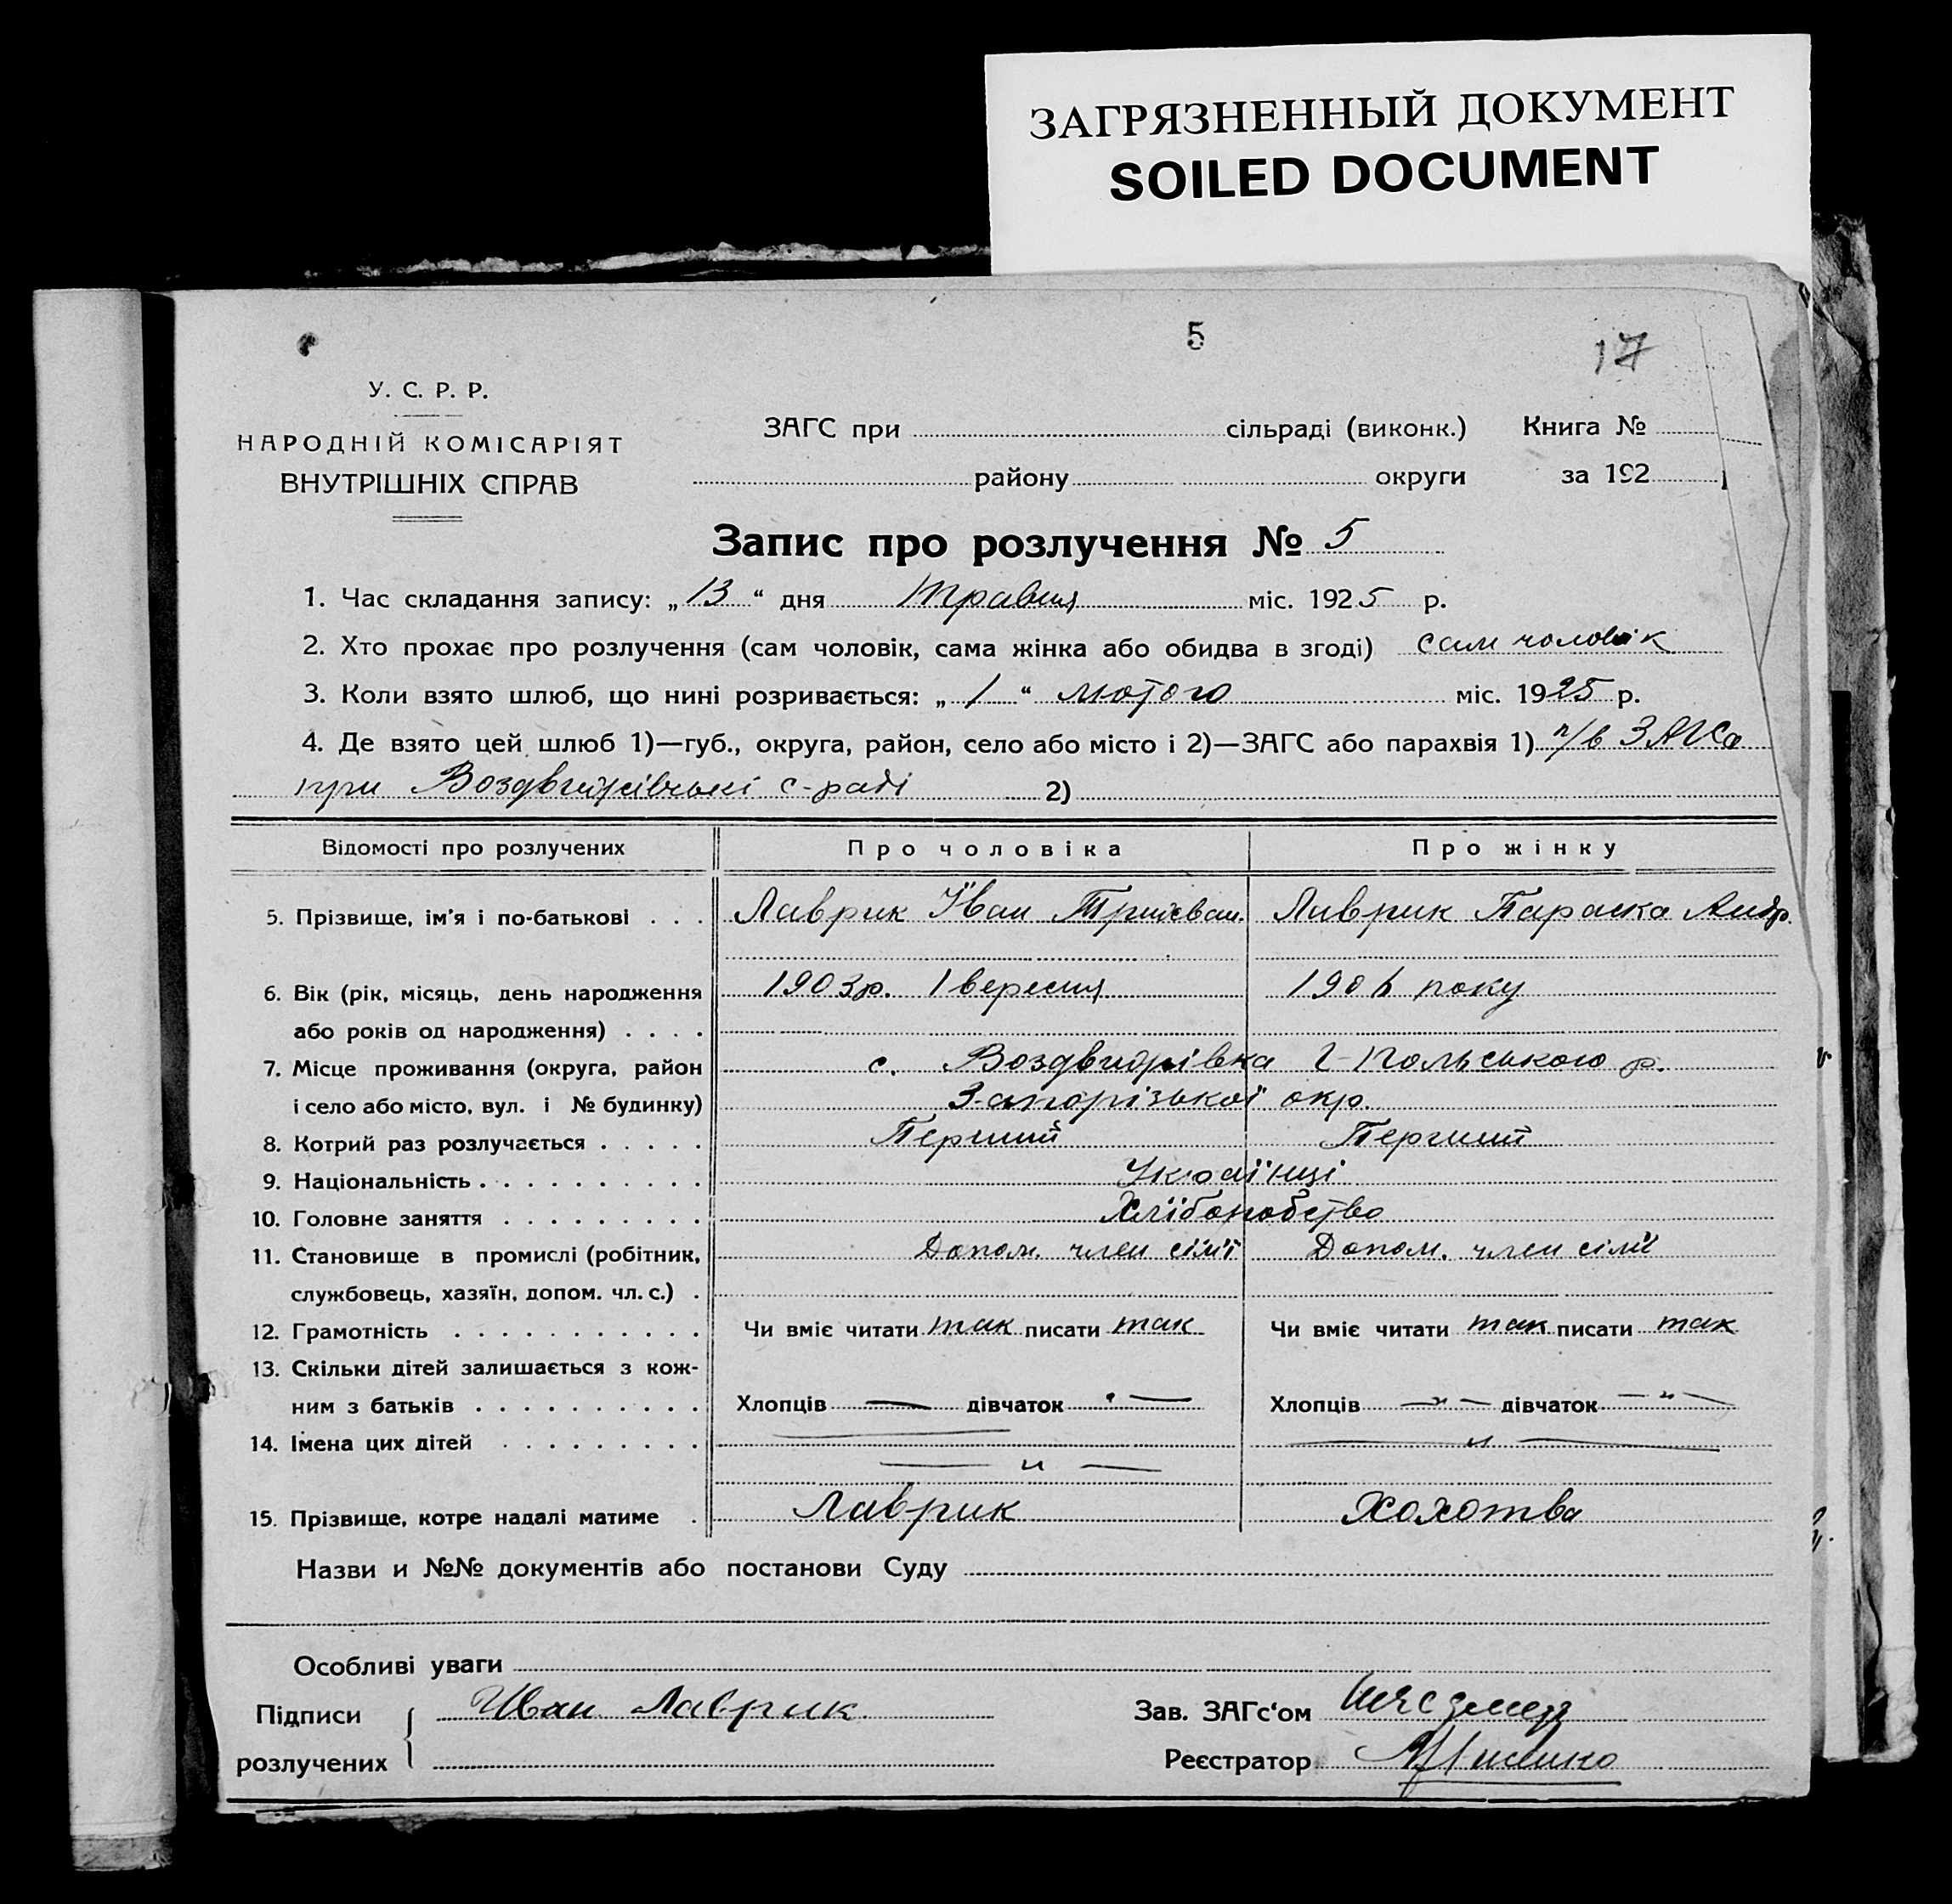 ЗАГРЯЗНЕННЫЙ ДОКУМЕНТ
SOILED DOCUMENT
5
17
У. С. Р. Р.
НАРОДНІЙ КОМІСАРІЯТ
ВНУТРІШНІХ СПРАВ
ЗАГС при сільраді (виконк.) Книга №
району округи за 192
Запис про розлучення № 5
1. Час складання запису: „ 13 “ дня травня міс. 1925 р.
2. Хто прохає про розлучення (сам чоловік, сама жінка або обидва в згоді) сам чоловік
3. Коли взято шлюб, що нині розривається: „ 1 “ лютого міс. 1925 р.
4. Де взято цей шлюб 1)—губ., округа, район, село або місто і 2)—ЗАГС або парахвія 1) п/в ЗАГСа
при Воздвиджівські с-раді 2)
Відомості про розлучених Про чоловіка Про жінку
5. Прізвище, ім'я і по-батькові . . . Лаврик Іван Лаврик Параска Андр.
6. Вік (рік, місяць, день народження 1903р. 1 вересня року
або років од народження) . . . .
7. Місце проживання (округа, район с. Воздвиджівка Г-Польського р.
і село або місто, вул. і № будинку) Запорізької окр.
8. Котрий раз розлучається . . . . . Перший Перший
9. Національність . . . . . . . . . . Українці
10. Головне заняття . . . . . . . . . Хліборобство
11. Становище в промислі (робітник, Допом. член сімї Допом. член сімї
службовець, хазяїн, допом. чл. с.) .
12. Грамотність . . . . . . . . . . . Чи вміє читати так писати так Чи вміє читати так писати так
13. Скільки дітей залишається з кож-
ним з батьків . . . . . . . . . . Хлопців — дівчаток — Хлопців — " — дівчаток — " —
14. Імена цих дітей . . . . . . . . . — — " —
— " —
15. Прізвище, котре надалі матиме . Лаврик Хохотва
Назви и №№ документів або постанови Суду
Особливі уваги
Підписи Иван Лаврик Зав. ЗАГс'ом
розлучених Реєстратор